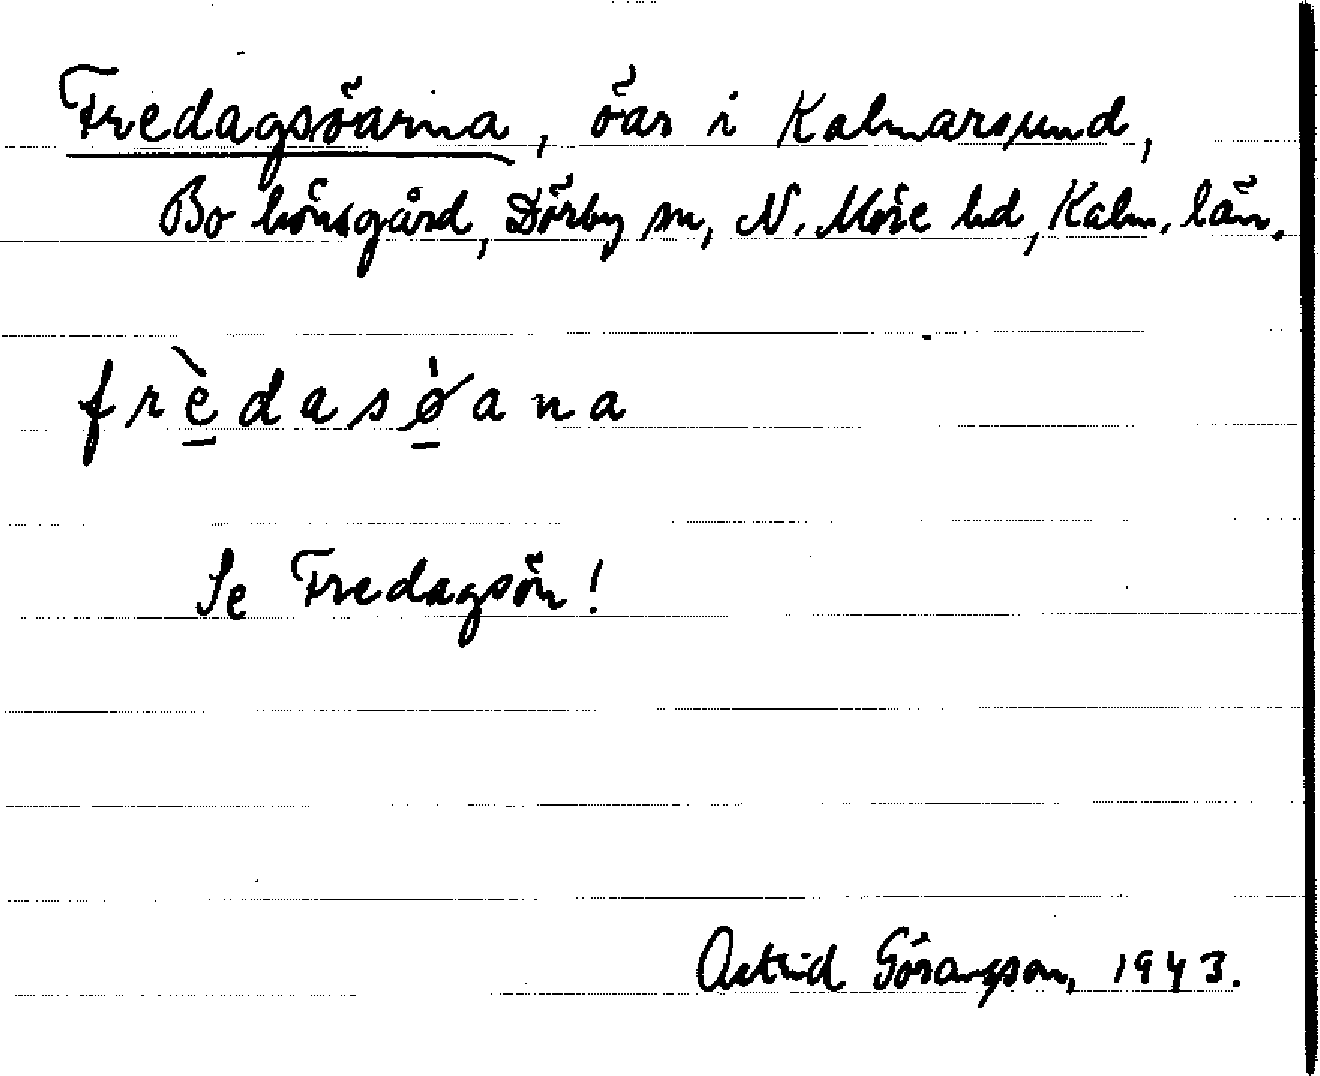 Fredagsöarna, öar i Kalmarsund,
Bo hönsgård, Dörby sn, N. Möre hd, Kalm. län.
frèdasǿana
Se Fredagsön!
Astrid Göransson, 1943.